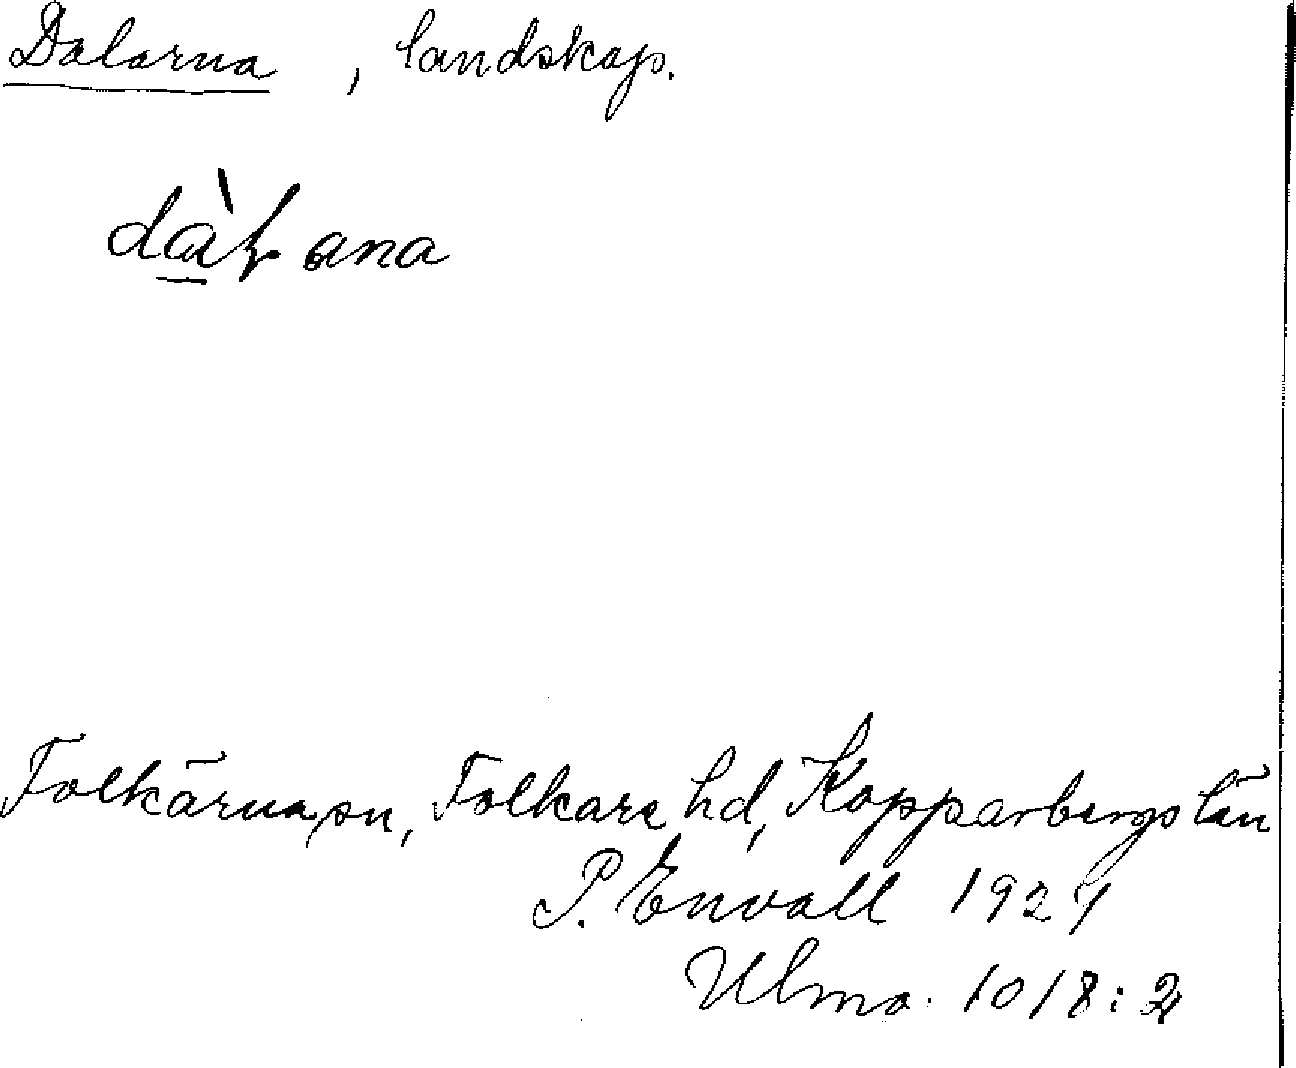 Dalarna, landskap.
dàɫana
Folkärna sn, Folkare hd, Kopparbergs län
P. Envall 1927
Ulma. 1018:2